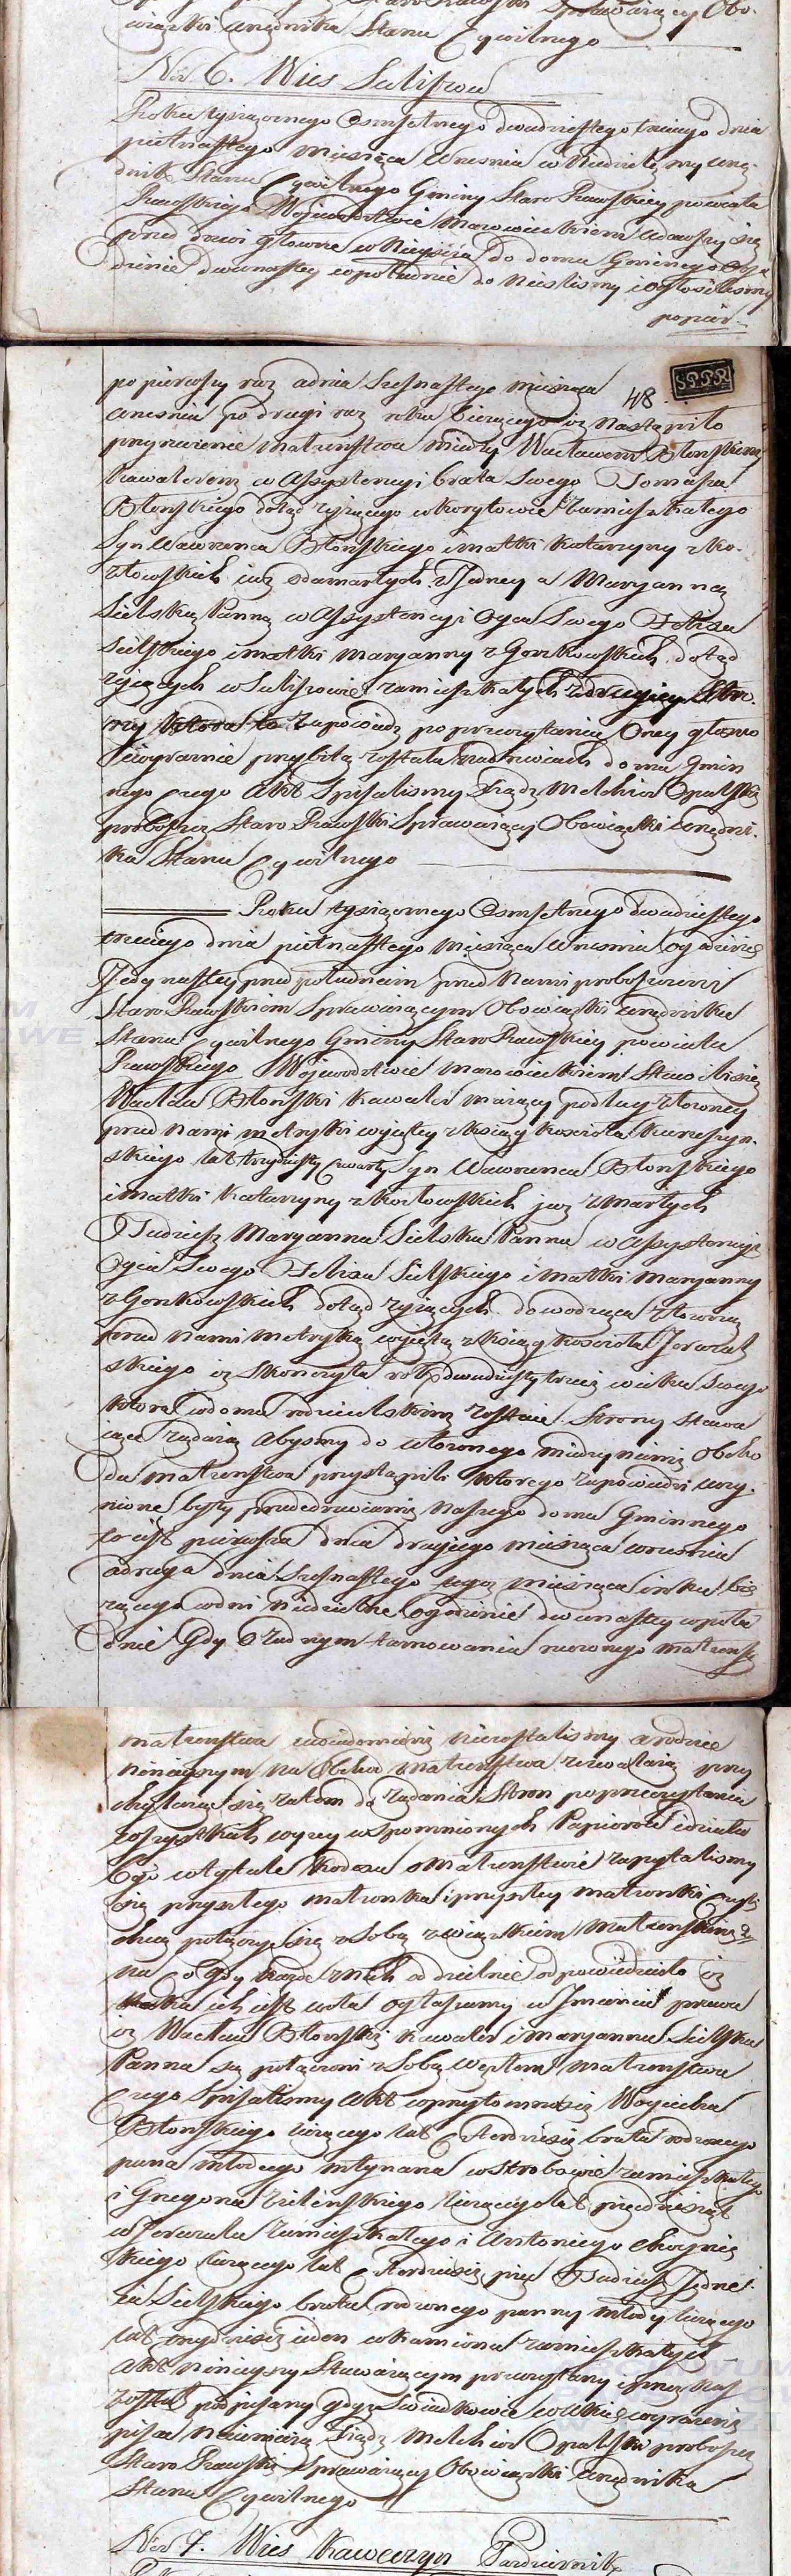 wiązki urzędnika Stanu Cywilnego
Nro 6. Wies Sulisow
Roku tysiącznego Osmsetnego dwudziestego trzeciego dnia
piętnastego Miesiąca Wresnia w Niedzielę my urzę-
dnik Stanu Cywilnego Gminy Staro Rawskiey powiatu
Rawskiego Wojewodztwie Mazowieckiem udawszy się
przed drzwi głowne w Neyscia do domu Gminnego o go
dzinie dwunastey w południe do nieslismy i ogłosilismy
popier-
48
SPPR
po pierwszy raz a dnia Szesnastego Miesiąca
wresnia po drugi raz roku bieżącego iz nastąpiło
przyrzeczenie małzenstwa między Wacławem Błonskiem
Kawalerem w Assystencyi brata swego Tomasza
Błonskiego dotąd zyiącego w Korytowie Zamieszkałego
Syn Wawrzenca Błonskiego i matki Katarzyny z Ko-
złowskich juz zdamarłych z Jedney a Maryanną
Sielską Panną w Assystencyi Oyca Swego Felixa
Sielskiego i matki Maryanny z Gorzkowskich dotąd
zyiących w Sulisowie zamieszkałych z drugiey Stro-
ny ktora to Zapowiedz po przeczytaniu Oney głosno
i wyraznie przybita została na drzwiach domu Gmin
nego czego Akt Spisalismy Xiądz Melchior Opalski
proboszcz Staro Rawski Sprawuiący Obowiązki urzędni-
ka Stanu Cywilnego
Roku tysiącznego Osmsetnego dwudziestego
trzeciego dnia piętnastego Miesiąca Wresnia o godzinie
Jedynastey przed południem przed Nami proboszczem
Staro Rawskiem Sprawuiącym Obowiązki urzędnika
Stanu Cywilnego Gminy Staro Rawskiey powiatu
Rawskiego Wojewodztwie Mazowieckiem Stawili się
Wacław Błonski Kawaler maiący podług złozoney
przed Nami metryki wyjętey z Xiąg Koscioła Kurzeszyn-
skiego lat trzydziesty czwarty Syn Wawrzenca Błonskiego
i matki Katarzyny z Kozłowskich juz zmarłych
Tudziesz Maryanna Sielska Panna w Assystencyi
Oyca Swego Felixa Sielskiego i Matki Maryanny
z Gorzkowskich dotąd zyiących dowodząca złozoną
przed nami Metryką wyjętą z Xiąg Koscioła Jeruzal
skiego iz Skonczyła rok dwudziesty trzeci wieku swego
ktora w domu rodzicielskim zostaie Strony Stawa
iące ządaią Abysmy do ułozonego między niemi Obcho
du małzenstwa przystąpili ktorego zapowiedzi uczy-
nione były przede drzwiami Naszego domu Gminnego
to iest pierwsza dnia drugiego miesiąca wresnia
a druga dnia Szesnastego tegoz miesiąca i roku bie
zącego w dni Niedzielne o godzinie dwunastey w połu
dnie Gdy o zadnym tamowaniu rzeczonego małzens
małzenstwa uwiadomieni nie zostalismy a rodzice
ninieyszym na Obchod małzenstwa zezwalaią przy
chylaiąc się zatem do ządania Stron po przeczytaniu
wszystkich wyzey wspomnionych Papierow i działu
Ego w tytule Kodexu o Małzenstwie zapytalismy
się przyszłego małzonka i przyszłey małzonki czyli
chcą połączyc się z Sobą związkiem Małzenskim
na co gdy kazde z nich oddzielnie odpowiedziało iz
taka ich iest wola ogłaszamy w Jmieniu prawa
iz Wacław Błonski kawaler i Maryanna Sielska
Panna są połączeni z Sobą węzłem Małzenstwa
Czego Spisalismy Akt w przytomnosci Woyciecha
Błonskiego liczącego lat Czterdziesci brata rodzonego
pana młodego młynarza w Strobowie zamieszkałego
i Grzegorza Zielinskiego liczącego lat pięcdziesiąt
w Jeruzalu zamieszkałego i Antoniego
kiego liczącego lat Czterdziesci pięc Tudziesz Jędrze-
ia Sielskiego brata rodzonego panny młody liczącego
lat trzydziesci ieden w Kamionie zamieszkałych
Akt ninieyszy Stawaiącym przeczytany i przez Nas
został podpisany gdyz Swiadkowie wszelkie wyraznie
pisac nieumieią Xiądz Melchior Opalski proboszcz
Staro Rawski Sprawuiący Obowiązki Urzędnika
Stanu Cywilnego
Nro 7. Wies Kaweczyn Pazdziernik